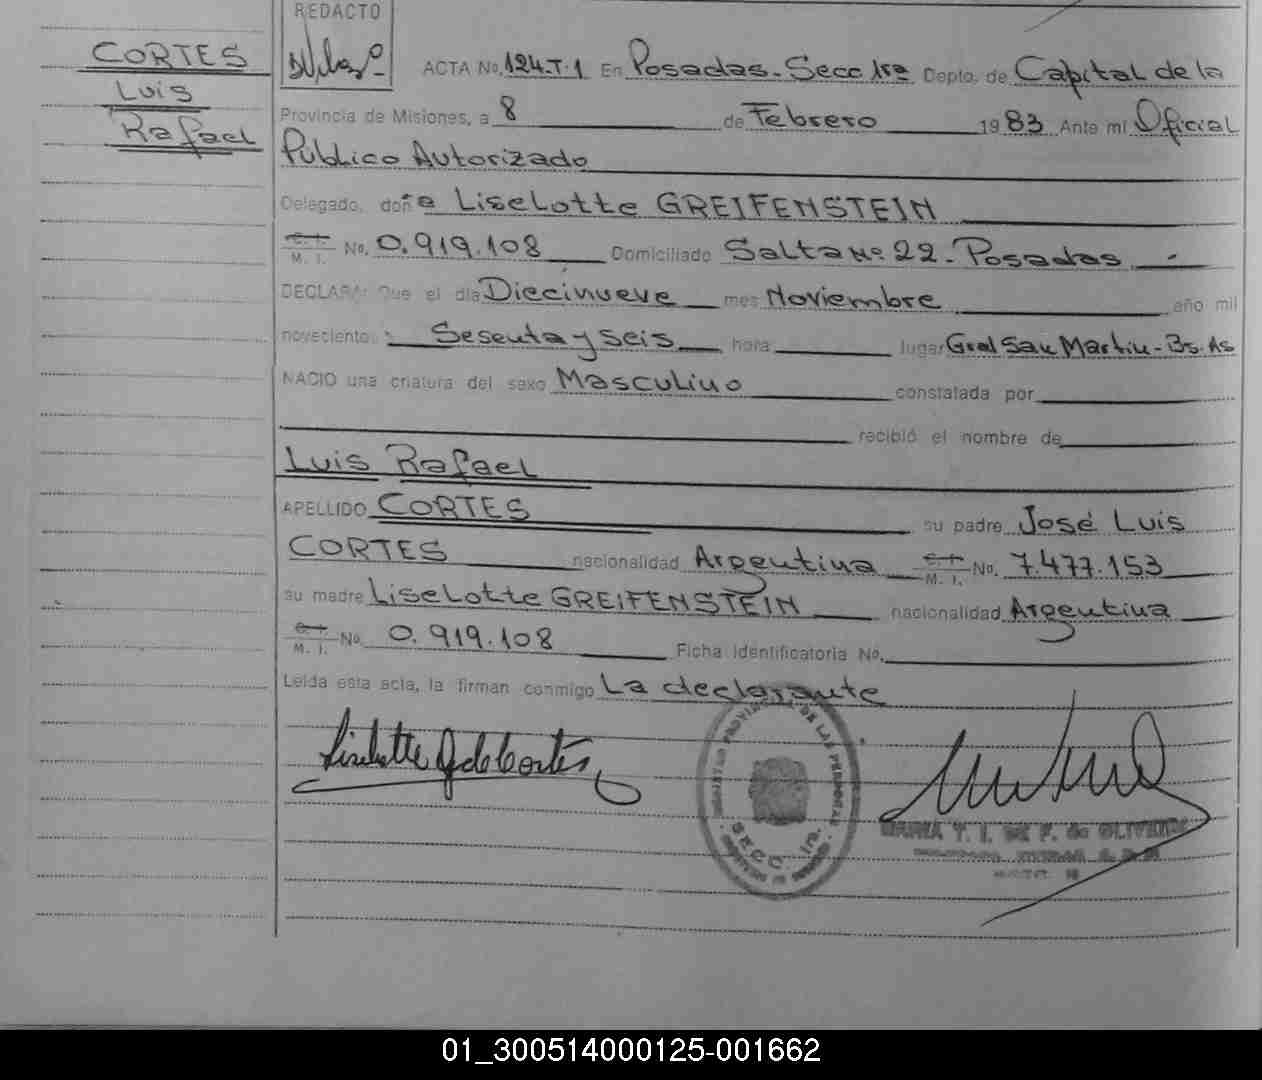 REDACTO
CORTES
Luis
Rafael
ACTA No. 124.T.1 En Posadas. Secc 1ra Depto. de Capital de la
Provincia de Misiones, a 8 de Febrero 1983 Ante mi Oficial
Público Autorizado
Delegado, doña Liselotte GREIFENSTEIN
C.I. M. I. No. 0.919.108 Domiciliado Salta No. 22. Posadas
DECLARA: Que el día Diecinueve mes Noviembre año mil
novecientos Sesenta y seis hora lugar Gral San Martin - Bs. As
NACIO una criatura del sexo Masculino constatada por
recibió el nombre de
Luis Rafael
APELLIDO CORTES su padre José Luis
CORTES nacionalidad Argentina C.I. M. I. No. 7.477.153
su madre Liselotte GREIFENSTEIN nacionalidad Argentina
C.I. M. I. No. 0.919.108 Ficha Identificatoria No.
Leída esta acta, la firman conmigo La declarante
Liselotte G de Cortés
PROVINCIAL DE LAS PERSONAS
SECC. 1ra.
MARIA T. I. DE F. de OLIVEIRA
01_300514000125-001662